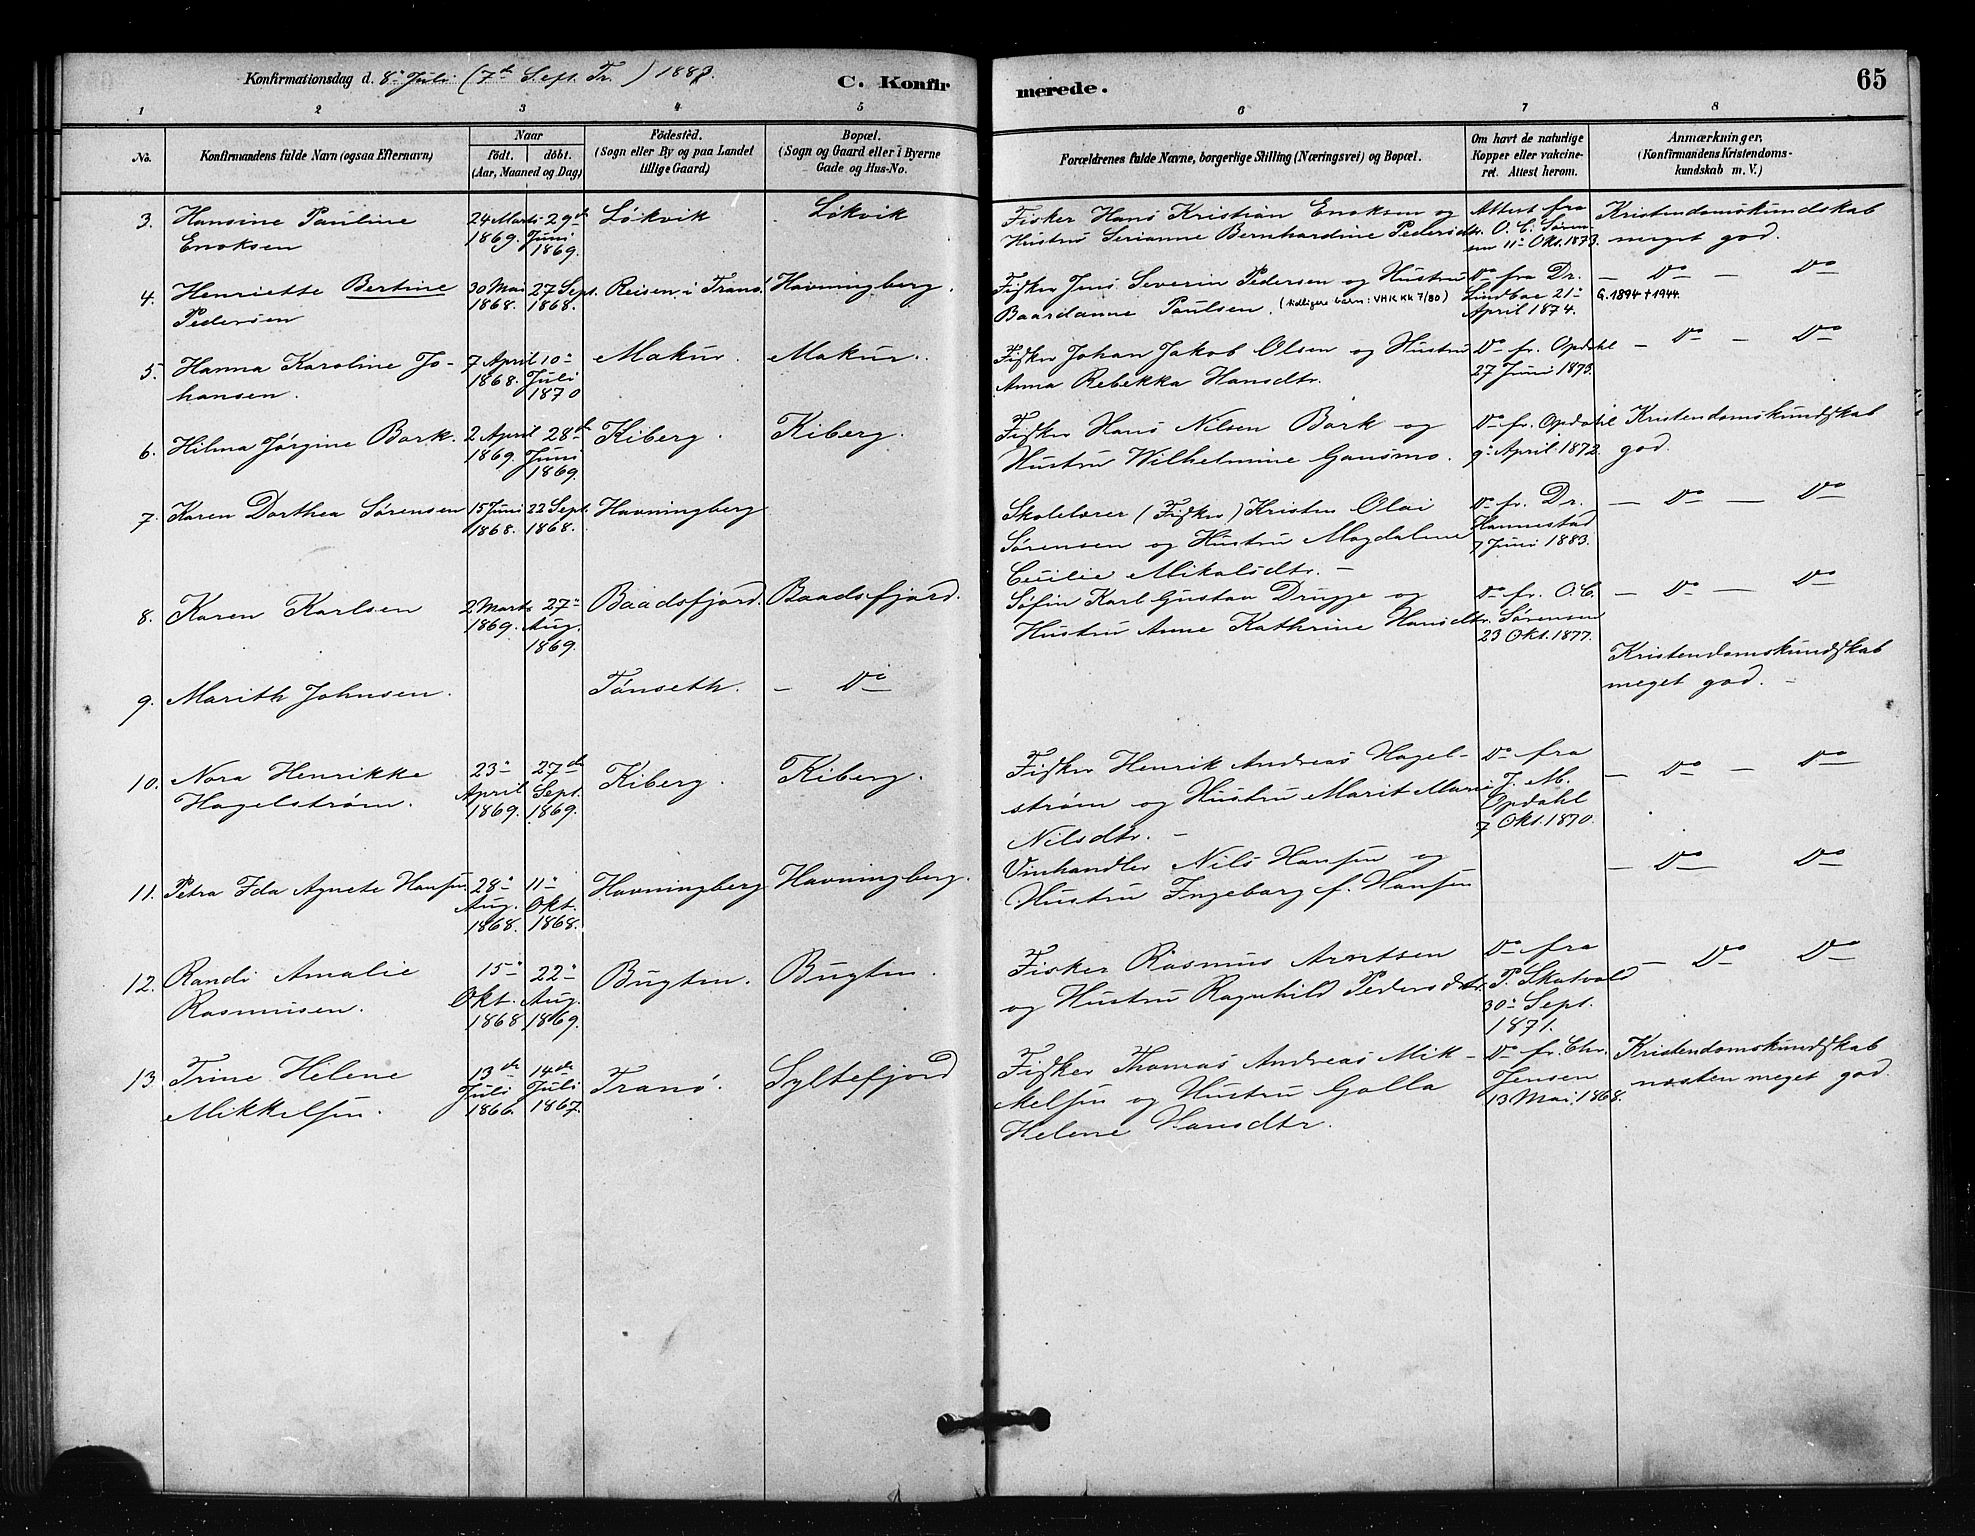 Konfirmationsdag d. 8de Juli (7de S. eft. Tr.) 1883.
C. Konfir
merede.
65
1 2 3 4 5 6 7 8
No.
Konfirmandens fulde Navn (ogsaa Efternavn)
Naar
födt. döbt.
(Aar, Maaned og Dag)
Födested.
(Sogn eller By og paa Landet
tillige Gaard)
Bopæl.
(Sogn og Gaard eller i Byerne
Gade og Hus-No.
Forældrenes fulde Navne, borgerlige Stilling (Næringsvei) og Bopæl.
Om havt de naturlige
Kopper eller vakcine-
ret. Attest herom.
Anmærkninger,
(Konfirmandens Kristendoms-
kundskab m. V.)
3. Hansine Pauline
Enoksen
24 Marts
1869.
29de
Juni
1869.
Løkvik
Løkvik
Fisker Hans Kristian Enoksen og
Hustru Serianne Bernhardine Pedersdtr.
Attest fra
O. C. Søren-
sen 11te Okt. 1873.
Kristendomskundskab
meget god.
4. Henriette Bertine
Pedersen
30 Mai
1868.
27 Sept.
1868.
Reisen i Tranö
Havningberg.
Fisker Jens Severin Pedersen og Hustru
Baardanne Paulsen. (tidligere barn: VHK KK 7/80)
Do fra Dr.
Lindboe 21de
April 1874.
— Do — Do
G. 1894 †1944.
5. Hanna Karoline Jo-
hansen.
7 April
1868.
10de
Juli
1870
Makur.
Makur.
Fisker Johan Jakob Olsen og Hustru
Anna Rebekka Hansdtr.
Do fr. Opdahl
27 Juni 1873.
— Do — Do
6. Hilma Jørgine Bork.
2 April
1869.
28de
Juni
1869.
Kiberg.
Kiberg.
Fisker Hans Nilsen Bork og
Hustru Wilhelmine Gansmo.
Do fr. Opdahl
9de April 1872.
Kristendomskundskab
god.
7. Karen Dorthea Sørensen
15 Juni
1868.
22 Sept.
1868.
Havningberg
Skolelærer (Fisker) Kristen Olai
Sørensen og Hustru Magdalene
Cecilie Mikalsdtr. —
Do fr. Dr.
Hannestad
7 Juni 1883.
— Do — Do
8. Karen Karlsen
2 Marts
1869.
27de
Aug.
1869.
Baadsfjord.
Baadsfjord.
Søfin Karl Gustav Drugge og
Hustru Anne Kathrine Hansdtr.
Do fr. O. C.
Sørensen
23 Okt. 1877.
— Do — Do
9. Marith Johnsen.
Tønseth.
— Do
Kristendomskundskab
meget god. —
10. Nora Henrikke
Hagelstrøm.
23de
April
1869.
27de
Sept.
1869.
Kiberg.
Kiberg.
Fisker Henrik Andreas Hagel-
strøm og Hustru Marit Marie
Nilsdtr. —
Do fra
J. M.
Opdahl
7 Okt. 1870.
— Do — Do
11. Petra Ida Agnete Hansen
28de
Aug.
1868.
11te
Okt.
1868.
Havningberg
Havningberg.
Vinhandler Nils Hansen og
Hustru Ingeborg f. Hansen
— Do — Do
12. Randi Amalie
Rasmusen.
15de
Okt.
1868
22de
Aug.
1869.
Bugten.
Bugten.
Fisker Rasmus Arntsen
og Hustru Ragnhild Pedersdtr.
Do fra
P. Skatvold
30te Sept.
1871.
— Do — Do
13. Trine Helene
Mikkelsen.
13de
Juli
1866.
14de
Juli
1867.
Tranö.
Syltefjord
Fisker Thomas Andreas Mik-
kelsen og Hustru Golla
Helene Hansdtr.
Do fr. Chr.
Jensen
13 Mai 1868.
Kristendomskundskab
næsten meget god.